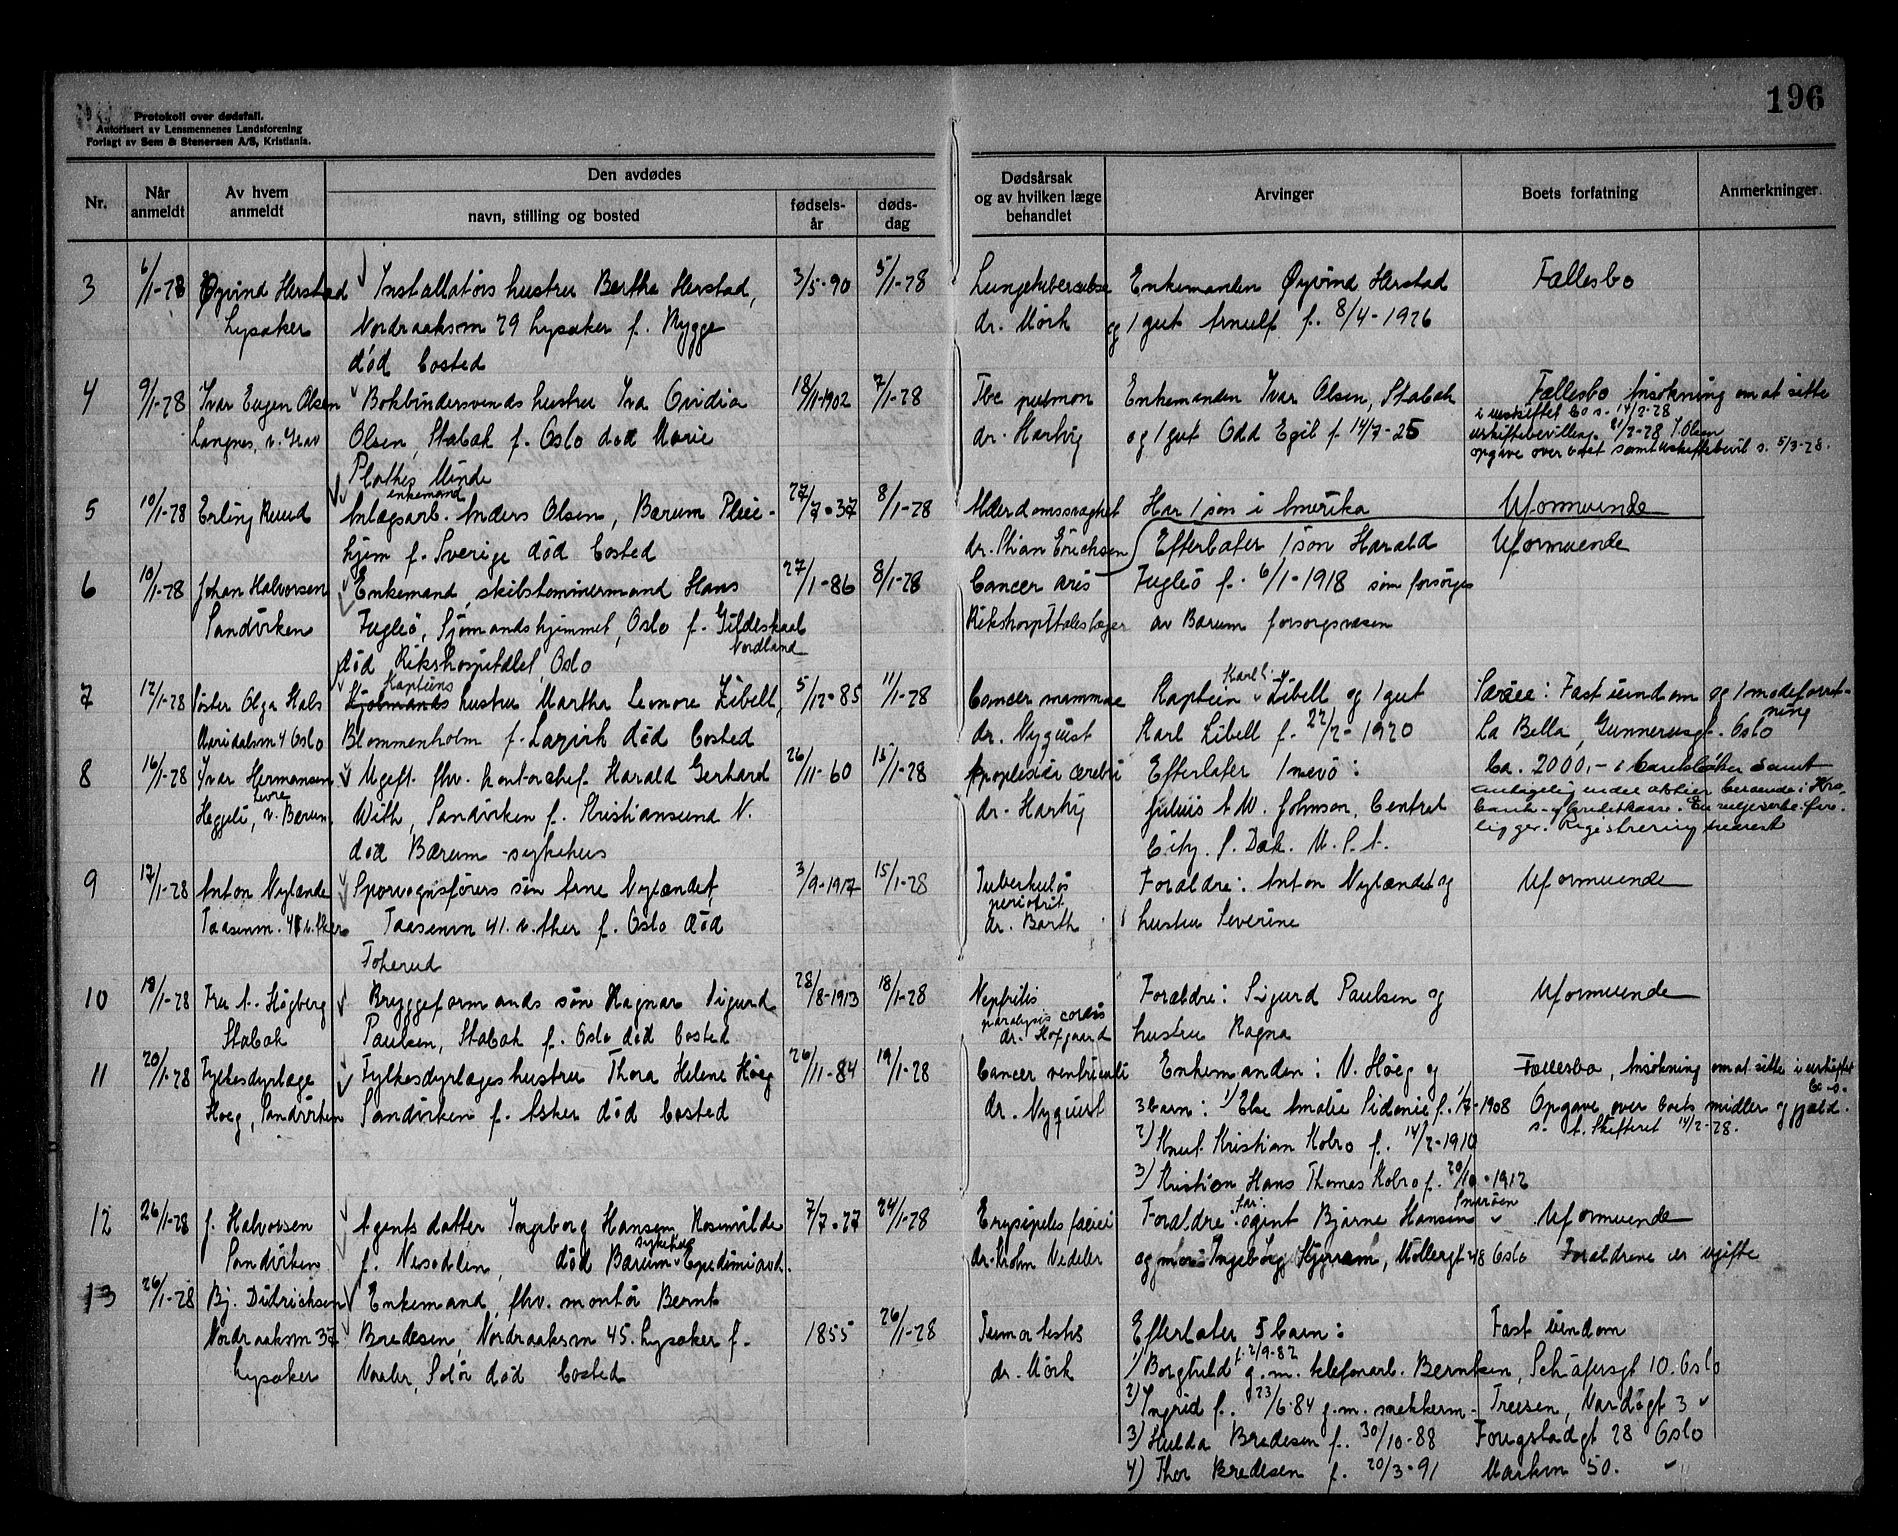 196
Protokoll over dødsfall.
Autorisert av Lensmennenes Landsforening
Forlagt av Sem & Stenersen A/S, Kristiania.
Nr.
Når anmeldt
Av hvem anmeldt
Den avdødes
navn, stilling og bosted
fødsels-år
døds-dag
Dødsårsak og av hvilken læge behandlet
Arvinger
Boets forfatning
Anmerkninger
3 6/1-28 Øyvind Herstad Installatørs hustru Bertha Herstad, 3/5-90 5/1-28 Lungetuberculose Enkemanden Øyvind Herstad Fællesbo
Lysaker Nordraaksvn 29 Lysaker f. Rygge dr. Mörk og 1 gut Arnulf f. 8/4-1926
död bosted
4 9/1-28 Ivar Eugen Olsen Bokbindersvends hustru Iva Ovidia 18/11-1902 7/1-28 Tbc pulmon Enkemanden Ivar Olsen, Stabæk Fællesbo Ansøkning om at sitte
i uskiftet bo s. 14/2-28
Langnes, v. Grav Olsen, Stabæk f. Oslo død Marie dr. Hartvig og 1 gut Odd Egil f. 14/7-25 uskiftebevilling 21/2-28 I. Olsen
opgave over boet samt uskiftebevil s. 5/3-28.
Plathes Minde
enkemand
5 10/1-28 Erling Ruud Anlægsarb. Anders Olsen, Bærum Pleie- 27/7-37 8/1-28 Alderdomssvaghet Har 1 søn i Amerika Uformuende
hjem f. Sverige død bosted dr. Stian Erichsen Efterlater 1 søn Harald Uformuende
6 10/1-28 Johan Halvorsen Enkemand, skibstømmermand Hans 27/1-86 8/1-28 Cancer Fugleö f. 6/1-1918 som forsørges
Sandviken Fugleö, Sjömandshjemmet, Oslo f. Gildeskaal Rikshospitalets læger av Bærum forsorgsvæsen
Nordland
död Rikshospitalet Oslo
Kapteins
7 12/1-28 Søster Olga Hals hustru Martha Leonore Libell, 5/12-85 11/1-28 Cancer mammae Kaptein Karl Libell og 1 gut Særeie: Fast eiendom og 1 modeforret-
ning
Maridalsvn 4 Oslo Blommenholm f. Larvik død bosted dr. Nyquist Karl Libell f. 22/2-1920 La Bella, Gunnerusgt. Oslo
8 16/1-28 Ivar Hermansen Ugift fhv. kontorchef Harald Gerhard 26/11-60 15/1-28 Apoplexia cerebri Efterlater 1 nevø: Ca. 2000,- i bankbøker samt
Levre
Heggeli, v. Bærum With, Sandviken f. Kristiansund N. dr. Hartvig Julius A. W. Johnson, Central
bank- og Creditkasse.
ligger. Registrering
død Bærum sykehus City. S. Dak. U.S.A.
9 17/1-28 Anton Nylandet Sporvognsförers sön Arne Nylandet, 3/9-1917 15/1-28 Tuberkuløs Forældre: Anton Nylandet og Uformuende
peritonit
Taasenvn. 41 v. Aker Taasenvn 41. v. Aker f. Oslo død dr. Barth hustru Severine
Tokerud
10 18/1-28 Fru A. Högberg Bryggeformands sön Ragnar Sigurd 28/8-1913 18/1-28 Nefritis Forældre: Sigurd Paulsen og Uformuende
paralysis cordis
Stabæk Paulsen, Stabæk f. Oslo död bosted dr. Hofgaard hustru Ragna
11 20/1-28 Fylkesdyrlæge Fylkesdyrlæges hustru Thora Helene Höeg 26/11-84 19/1-28 Cancer ventriculi Enkemanden: N. Höeg og Fællesbo, Ansøkning om at sitte i uskiftet
bo s.
Höeg, Sandviken Sandviken f. Asker död bosted dr. Nyquist 3 barn: 1) Else Amalie Sidonie f. 1/7-1908 Opgave over boets midler og gjæld.
s. t. Skifteret 14/2-28.
2) Knut Kristian Kobro f. 14/2-1910
3) Kristian Hans Thomas Kobro f. 20/10-1912
12 26/1-28 J. Halvorsen Agents datter Ingeborg Hansen Rosenvilde 7/7-27 24/1-28 Erysipelas faciei Forældre: far: agent Bjarne Hansen Snarøen Uformuende
Sandviken f. Nesodden, död Bærum sykehus Epidemiavd. dr. Krohn Vedeler og mor: Ingeborg, Møllergt 48 Oslo Forældrene er ugifte
13 26/1-28 Bj. Didrichsen Enkemand, fhv. montör Bernt
Nordraaksvn 37 Bredesen, Nordraaksvn 45. Lysaker f. 1855 26/1-28 Tumor testis Efterlater 5 barn: Fast eiendom
Lysaker Vaaler, Solör död bosted dr. Mörk 1) Borghild f. 2/9-82 g.m. telefonarb. Berntsen, Schäfersgt 10. Oslo
2) Ingrid f. 23/6-84 g.m. snekkerm. Treisen, Nardøgt 3
3) Hulda Bredesen f. 30/10-88 Fougstadgt 28 Oslo
4) Thor Bredesen f. 20/3-91 Markvn 50.